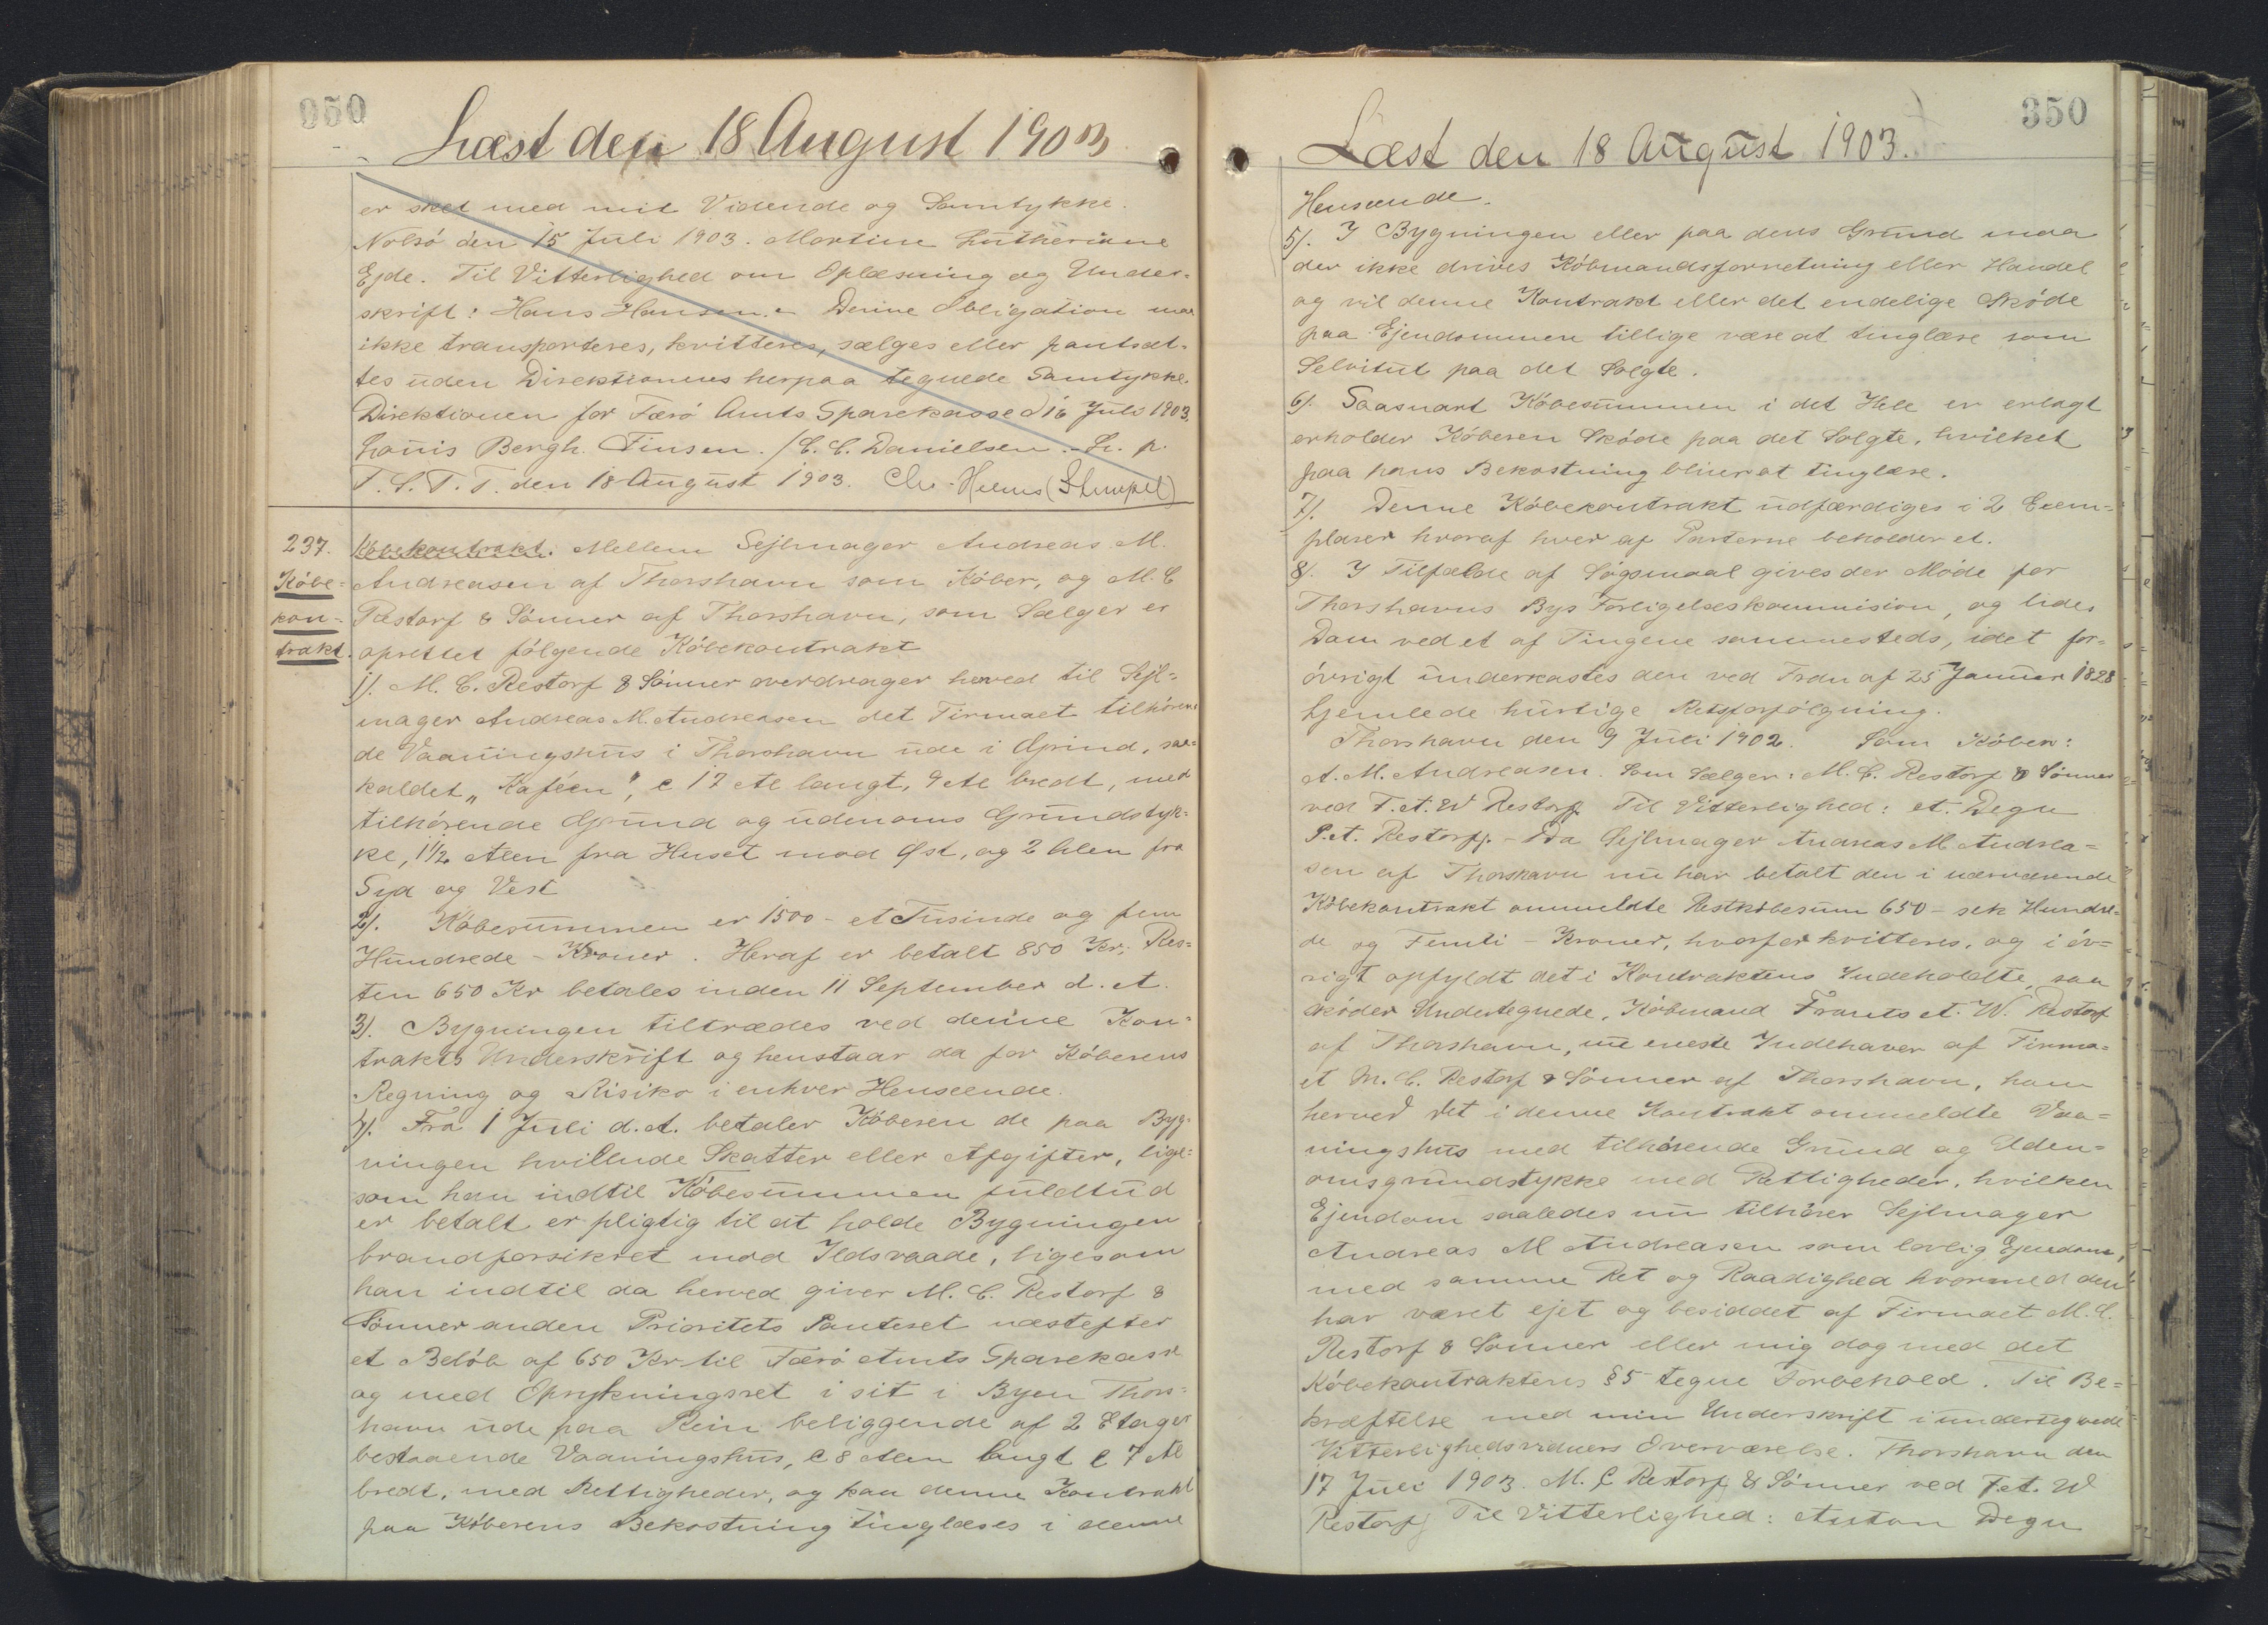 350
Læst den 18 August 1903
er sket med mit Vidende og Samtykke.
Nolsö den 15 Juli 1903. Martine Lutheriane
Ejde. Til Vitterlighed om Oplæsning og Under-
skrift: Hans Hansen. Denne Obligation maa
ikke transporteres, kvitteres, sælges eller pantsæt-
tes uden Direktionens herpaa tegnede Samtykke.
Direktionen for Færö Amts Sparekasse d 16 Juli 1903.
Louis Bergh. Finsen. / C. C. Danielsen. L. p.
T. S. T. T. den 18 August 1903. Chr. Helms (Stempel)
237. Købekontrakt. Mellem Sejlmager Andreas M.
Købe= Andreasen af Thorshavn som Köber, og M. C
kon= Restorf & Sönner af Thorshavn, som Sælger er
trakt. oprettet fölgende Købekontrakt
1). M. C. Restorf & Sönner overdrager herved til Sejl=
mager Andreas M. Andreasen det Firmaet tilhören=
de Vaaningshus i Thorshavn ude i Grind, saa=
kaldet „Kaféen", c 17 Al langt, 9 Al bredt, med
tilhörende Grund og udenoms Grundstyk=
ke, 1½ Alen fra Huset mod Øst, og 2 Alen fra
Syd og Vest
2). Købesummen er 1500 - et Tusinde og fem
Hundrede - Kroner. Heraf er betalt 850 Kr; Res=
ten 650 Kr betales inden 11 September d. A.
3). Bygningen tiltrædes ved denne Kon=
trakts Underskrift og henstaar da for Köberens
Regning og Risiko i enhver Henseende.
4). Fra 1 Juli d. A. betaler Köberen de paa Byg=
ningen hvillende Skatter eller Afgifter, lige=
som han indtil Købesummen fuldtud
er betalt er pligtig til at holde Bygningen
brandforsikret mod Ildsvaade, ligesom
han indtil da herved giver M. C. Restorf &
Sönner anden Prioritets Panteret næstefter
et Belöb af 650 Kr til Færö Amts Sparekasse
og med Oprykningsret i sit i Byen Thors=
havn ude paa Rein beliggende af 2 Etager
bestaaende Vaaningshus, c 8 Alen langt c 7 Al
bredt, med Rettigheder, og kan denne Kontrakt
paa Köberens Bekostning tinglæses i denne
350
Læst den 18 August 1903.
Henseende.
5). I Bygningen eller paa dens Grund maa
der ikke drives Købmandsforretning eller Handel
og vil denne Kontrakt eller det endelige Sköde
paa Ejendommen tillige være at tinglæse som
Selvitut paa det Solgte.
6). Saasnart Købesummen i det Hele er erlagt
erholder Köberen Sköde paa det Solgte, hvilket
paa hans Bekostning bliver at tinglæse.
7). Denne Købekontrakt udfærdiges i 2 Exem=
plarer hvoraf hver af Parterne beholder et.
8). I Tilfælde af Sögsmaal gives der Möde for
Thorshavns Bys Forligelseskommision, og lides
Dom ved et af Tingene sammesteds, idet for=
övrigt underkastes den ved Frdn af 25 Januar 1828
hjemlede hurtige Retsforfölgning.
Thorshavn den 9 Juli 1902. Som Köber:
A. M. Andreasen. Som Sælger: M. C. Restorf & Sönner
ved F. A. W Restorff Til Vitterlighed: A. Degn
P. A. Restorff. - Da Sejlmager Andreas M Andrea=
sen af Thorshavn nu har betalt den i nærværende
Købekontrakt ommeldte Restkøbesum 650 - sek Hundre=
de og Femti - Kroner, hvorfor kvitteres, og i öv=
rigt opfyldt det i Kontraktens Indeholdte, saa
sköder Undertegnede, Købmand Frants A. W. Restorf
af Thorshavn, nu eneste Indehaver af Firma=
et M. C. Restorf & Sönner af Thorshavn, ham
herved det i denne Kontrakt ommeldte Vaa=
ningshus med tilhörende Grund og Uden=
omsgrundstykke med Rettigheder, hvilken
Ejendom saaledes nu tilhører Sejlmager
Andreas M Andreasen som lovlig Ejendom,
med samme Ret og Raadighed hvormed den
har været ejet og besiddet af Firmaet M. C.
Restorf & Sönner eller mig dog med det
Købekontraktens § 5 tegne Forbehold. Til Be=
kræftelse med min Underskrift i undertegnede
Vitterlighedsvidners Overværelse. Thorshavn den
17 Juli 1903. M. C Restorff & Sönner ved F. A. W
Restorff Til Vitterlighed: Anton Degn